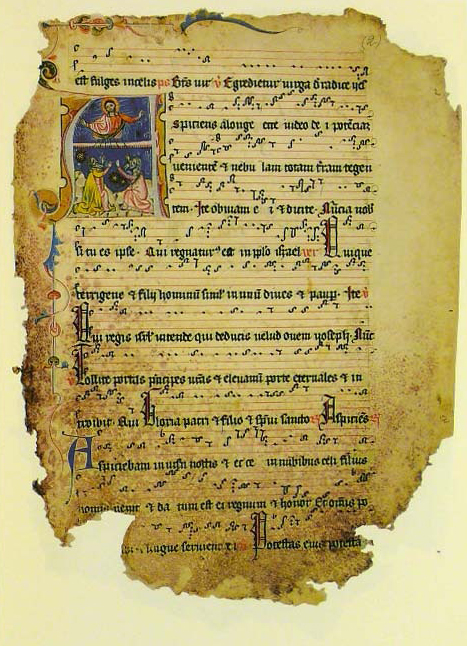 (2)
est fulges in celis ps Bt̄s uir v̄ Egredietur uirga d̄ radice yes
Aspiciens a longe ecce video dei potētiaz
uenientē & nebulam totam t̄ram tegen
tem. Ite obuiam ei & dicite. Nūcia nob
si tu es ipse. Qui regnatur9 est in pplo israel Quique
terrigene & filij hominū simul in unū diues & paup. Ite
Qui regis isrl intende qui deducis uelud ouem yoseph. Nūc
Tollite portas principes uestras & eleuamī porte eternales & in
troibit. Qui Gloria patri & filio & spūi sancto Aspiciēs
Aspiciebam in uisu noctis & ecce in nubibus celi filius
hominis uenit & datum est ei regnum & honor Et omis po
seruient ei Potestas eius potesta